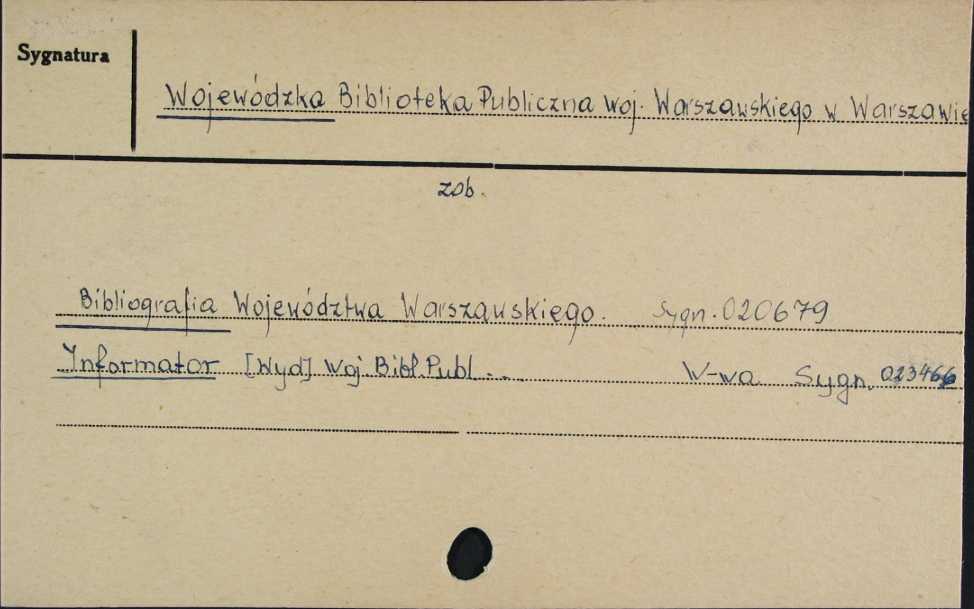 Sygnatura
Wojewódzka Biblioteka Publiczna woj. Warszawskiego w Warszawie
zob.
Bibliografia Województwa Warszawskiego. Sygn. 020679
Informator [Wyd] Woj. Bibl. Publ. ... W-wa Sygn. 023466